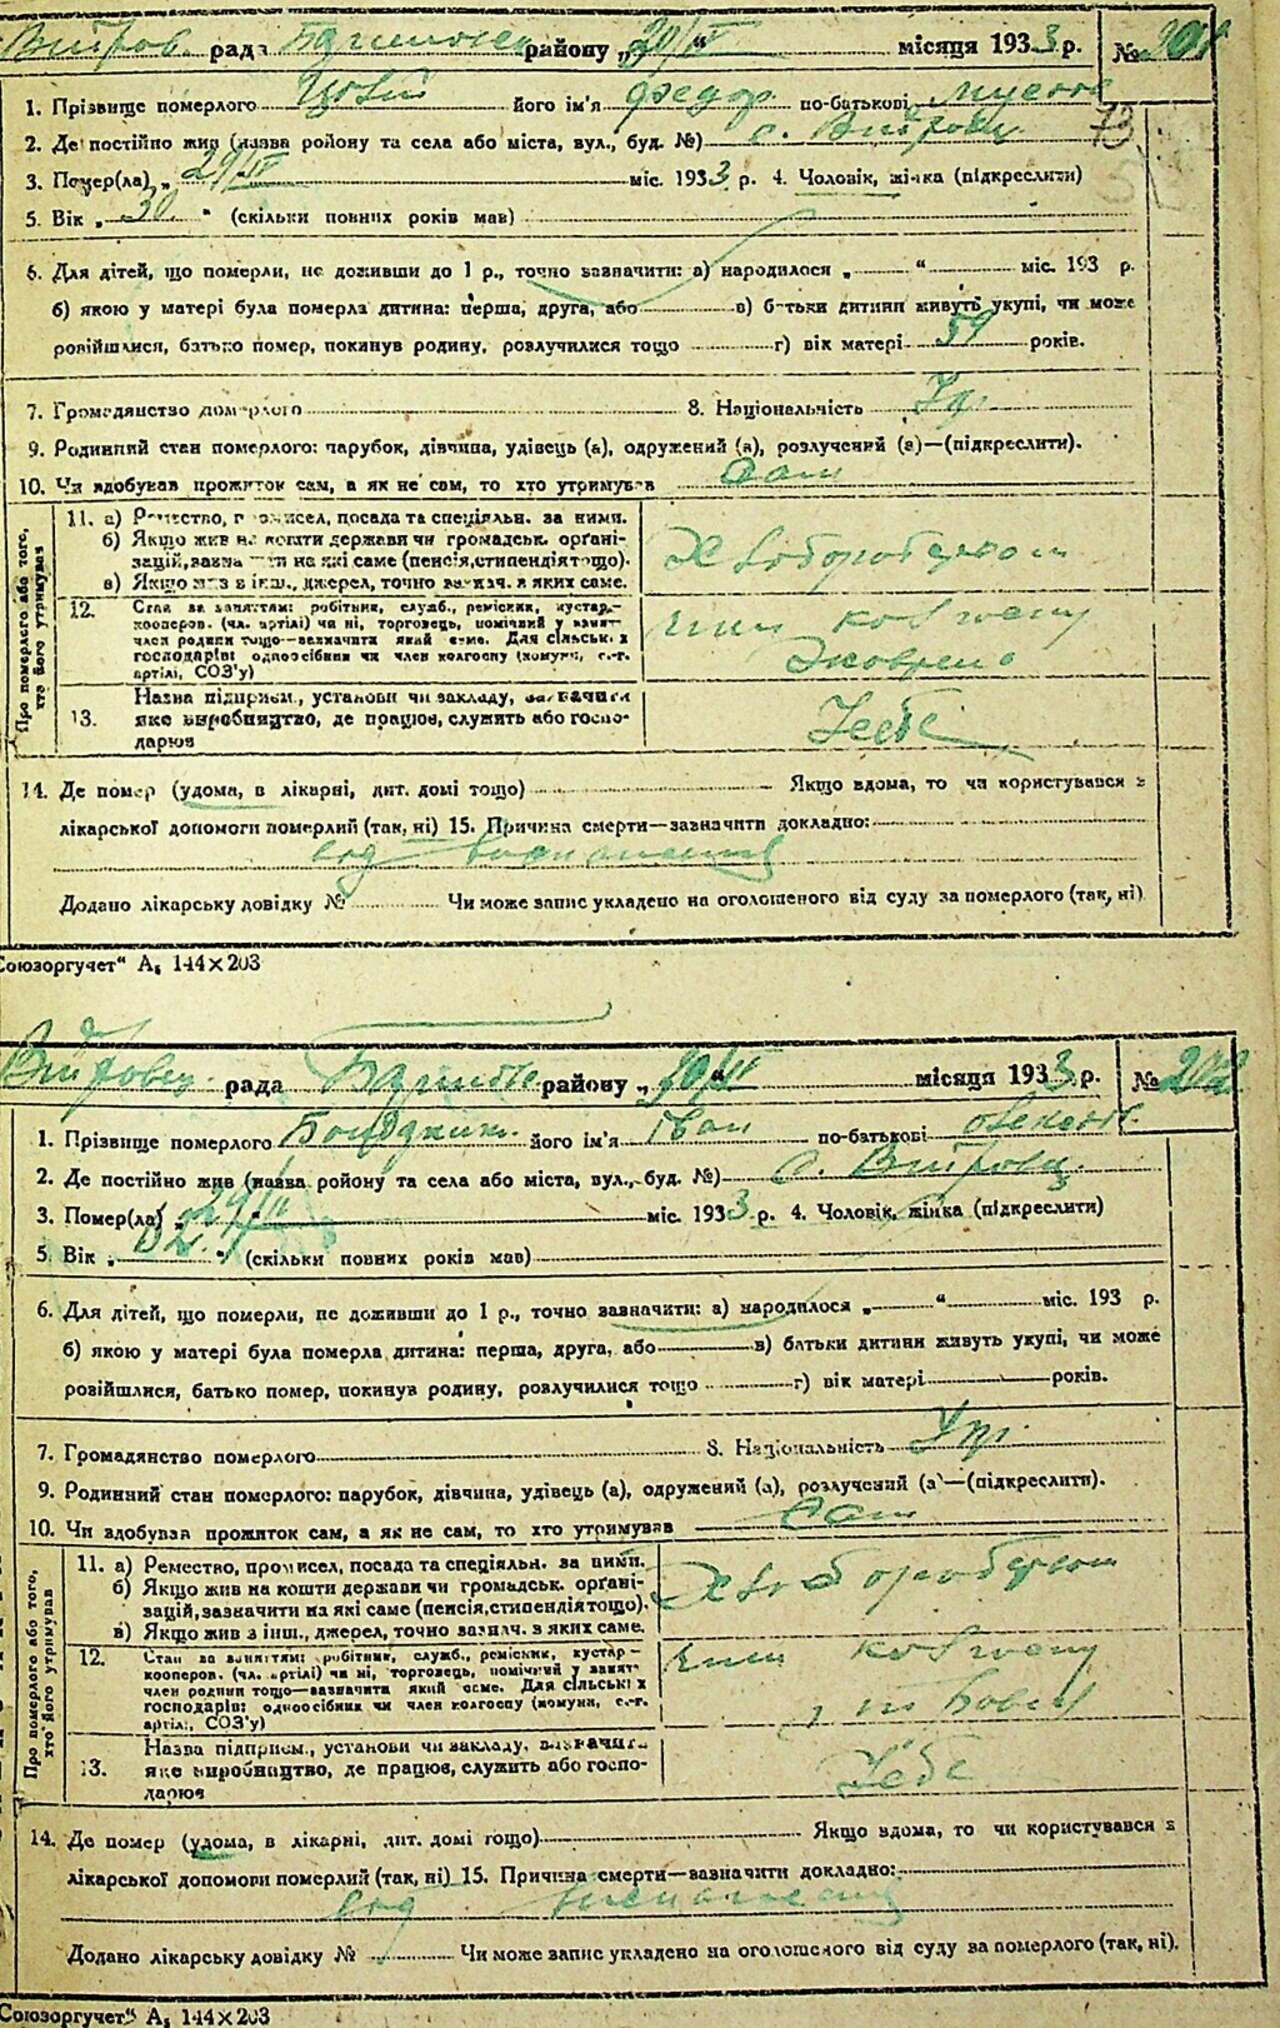 рада району „20/IV“ місяця 1933 р. №
1. Прізвище померлого його ім'я Федор по-батькові
2. Де постійно жив (назва ройону та села або міста, вул., буд. №) с.
3. Помер(ла) „ 29/ міс. 1933 р. 4. Чоловік, жінка (підкреслити)
5. Вік „ 30 “ (скільки повних років мав)
73
6. Для дітей, що померли, не доживши до 1 р., точно зазначити: а) народилося „ “ міс. 193 р.
б) якою у матері була померла дитина: перша, друга, або в) батьки дитини живуть укупі, чи може
розійшлися, батько помер, покинув родину, розлучилися тощо г) вік матері 59 років.
7. Громадянство померлого 8. Національність Укр.
9. Родинний стан померлого: парубок, дівчина, удівець (а), одружений (а), розлучений (а)—(підкреслити).
10. Чи здобував прожиток сам, а як не сам, то хто утримував Сам
Про померлого або того, хто його утримував
11. а) Ремество, промисел, посада та спеціяльн. за ними.
б) Якщо жив на кошти держави чи громадськ. орґані-
зацій, зазначити на які саме (пенсія, стипендія тощо).
в) Якщо жив з інш., джерел, точно зазнач. в яких саме.
Хлібороборством
12. Стан за заняттям: робітник, служб., ремісник, кустар—
кооперов. (чл. артілі) чи ні, торговець, помічний у занят
член родини тощо—зазначити який саме. Для сільськ. х
господарів: одноосібник чи член колгоспу (комуни, с.-г.
артілі, СОЗ'у)
член колгоспу
13. Назва підприєм., установи чи закладу, зазначити
яке виробництво, де працює, служить або госпо-
дарює
Себе
14. Де помер (удома, в лікарні, дит. домі тощо) Якщо вдома, то чи користувався з
лікарської допомоги померлий (так, ні) 15. Причина смерти—зазначити докладно:
од
Додано лікарську довідку № Чи може запис укладено на оголошеного від суду за померлого (так, ні)
Союзоргучет“ А₅ 144×203
рада району „ 20/IV “ місяця 1933 р. №
1. Прізвище померлого його ім'я Іван по-батькові
2. Де постійно жив (назва ройону та села або міста, вул., буд. №) с.
3. Помер(ла) „ 29/ міс. 1933 р. 4. Чоловік, жінка (підкреслити)
5. Вік „ “ (скільки повних років мав)
6. Для дітей, що померли, не доживши до 1 р., точно зазначити: а) народилося „ “ міс. 193 р.
б) якою у матері була померла дитина: перша, друга, або в) батьки дитини живуть укупі, чи може
розійшлися, батько помер, покинув родину, розлучилися тощо г) вік матері років.
7. Громадянство померлого 8. Національність Укр.
9. Родинний стан померлого: парубок, дівчина, удівець (а), одружений (а), розлучений (а)—(підкреслити).
10. Чи здобував прожиток сам, а як не сам, то хто утримував Сам
Про померлого або того, хто його утримував
11. а) Ремество, промисел, посада та спеціяльн. за ними.
б) Якщо жив на кошти держави чи громадськ. орґані-
зацій, зазначити на які саме (пенсія, стипендія тощо).
в) Якщо жив з інш., джерел, точно зазнач. в яких саме.
Хлібороборством
12. Стан за заняттям: робітник, служб., ремісник, кустар—
кооперов. (чл. артілі) чи ні, торговець, помічний у занят
член родини тощо—зазначити який саме. Для сільськ. х
господарів: одноосібник чи член колгоспу (комуни, с.-г.
артілі, СОЗ'у)
член колгоспу
13. Назва підприєм., установи чи закладу, зазначити
яке виробництво, де працює, служить або госпо-
дарює
Себе
14. Де помер (удома, в лікарні, дит. домі тощо) Якщо вдома, то чи користувався з
лікарської допомоги померлий (так, ні) 15. Причина смерти—зазначити докладно:
од
Додано лікарську довідку № Чи може запис укладено на оголошеного від суду за померлого (так, ні).
Союзоргучет“ А₅ 144×203